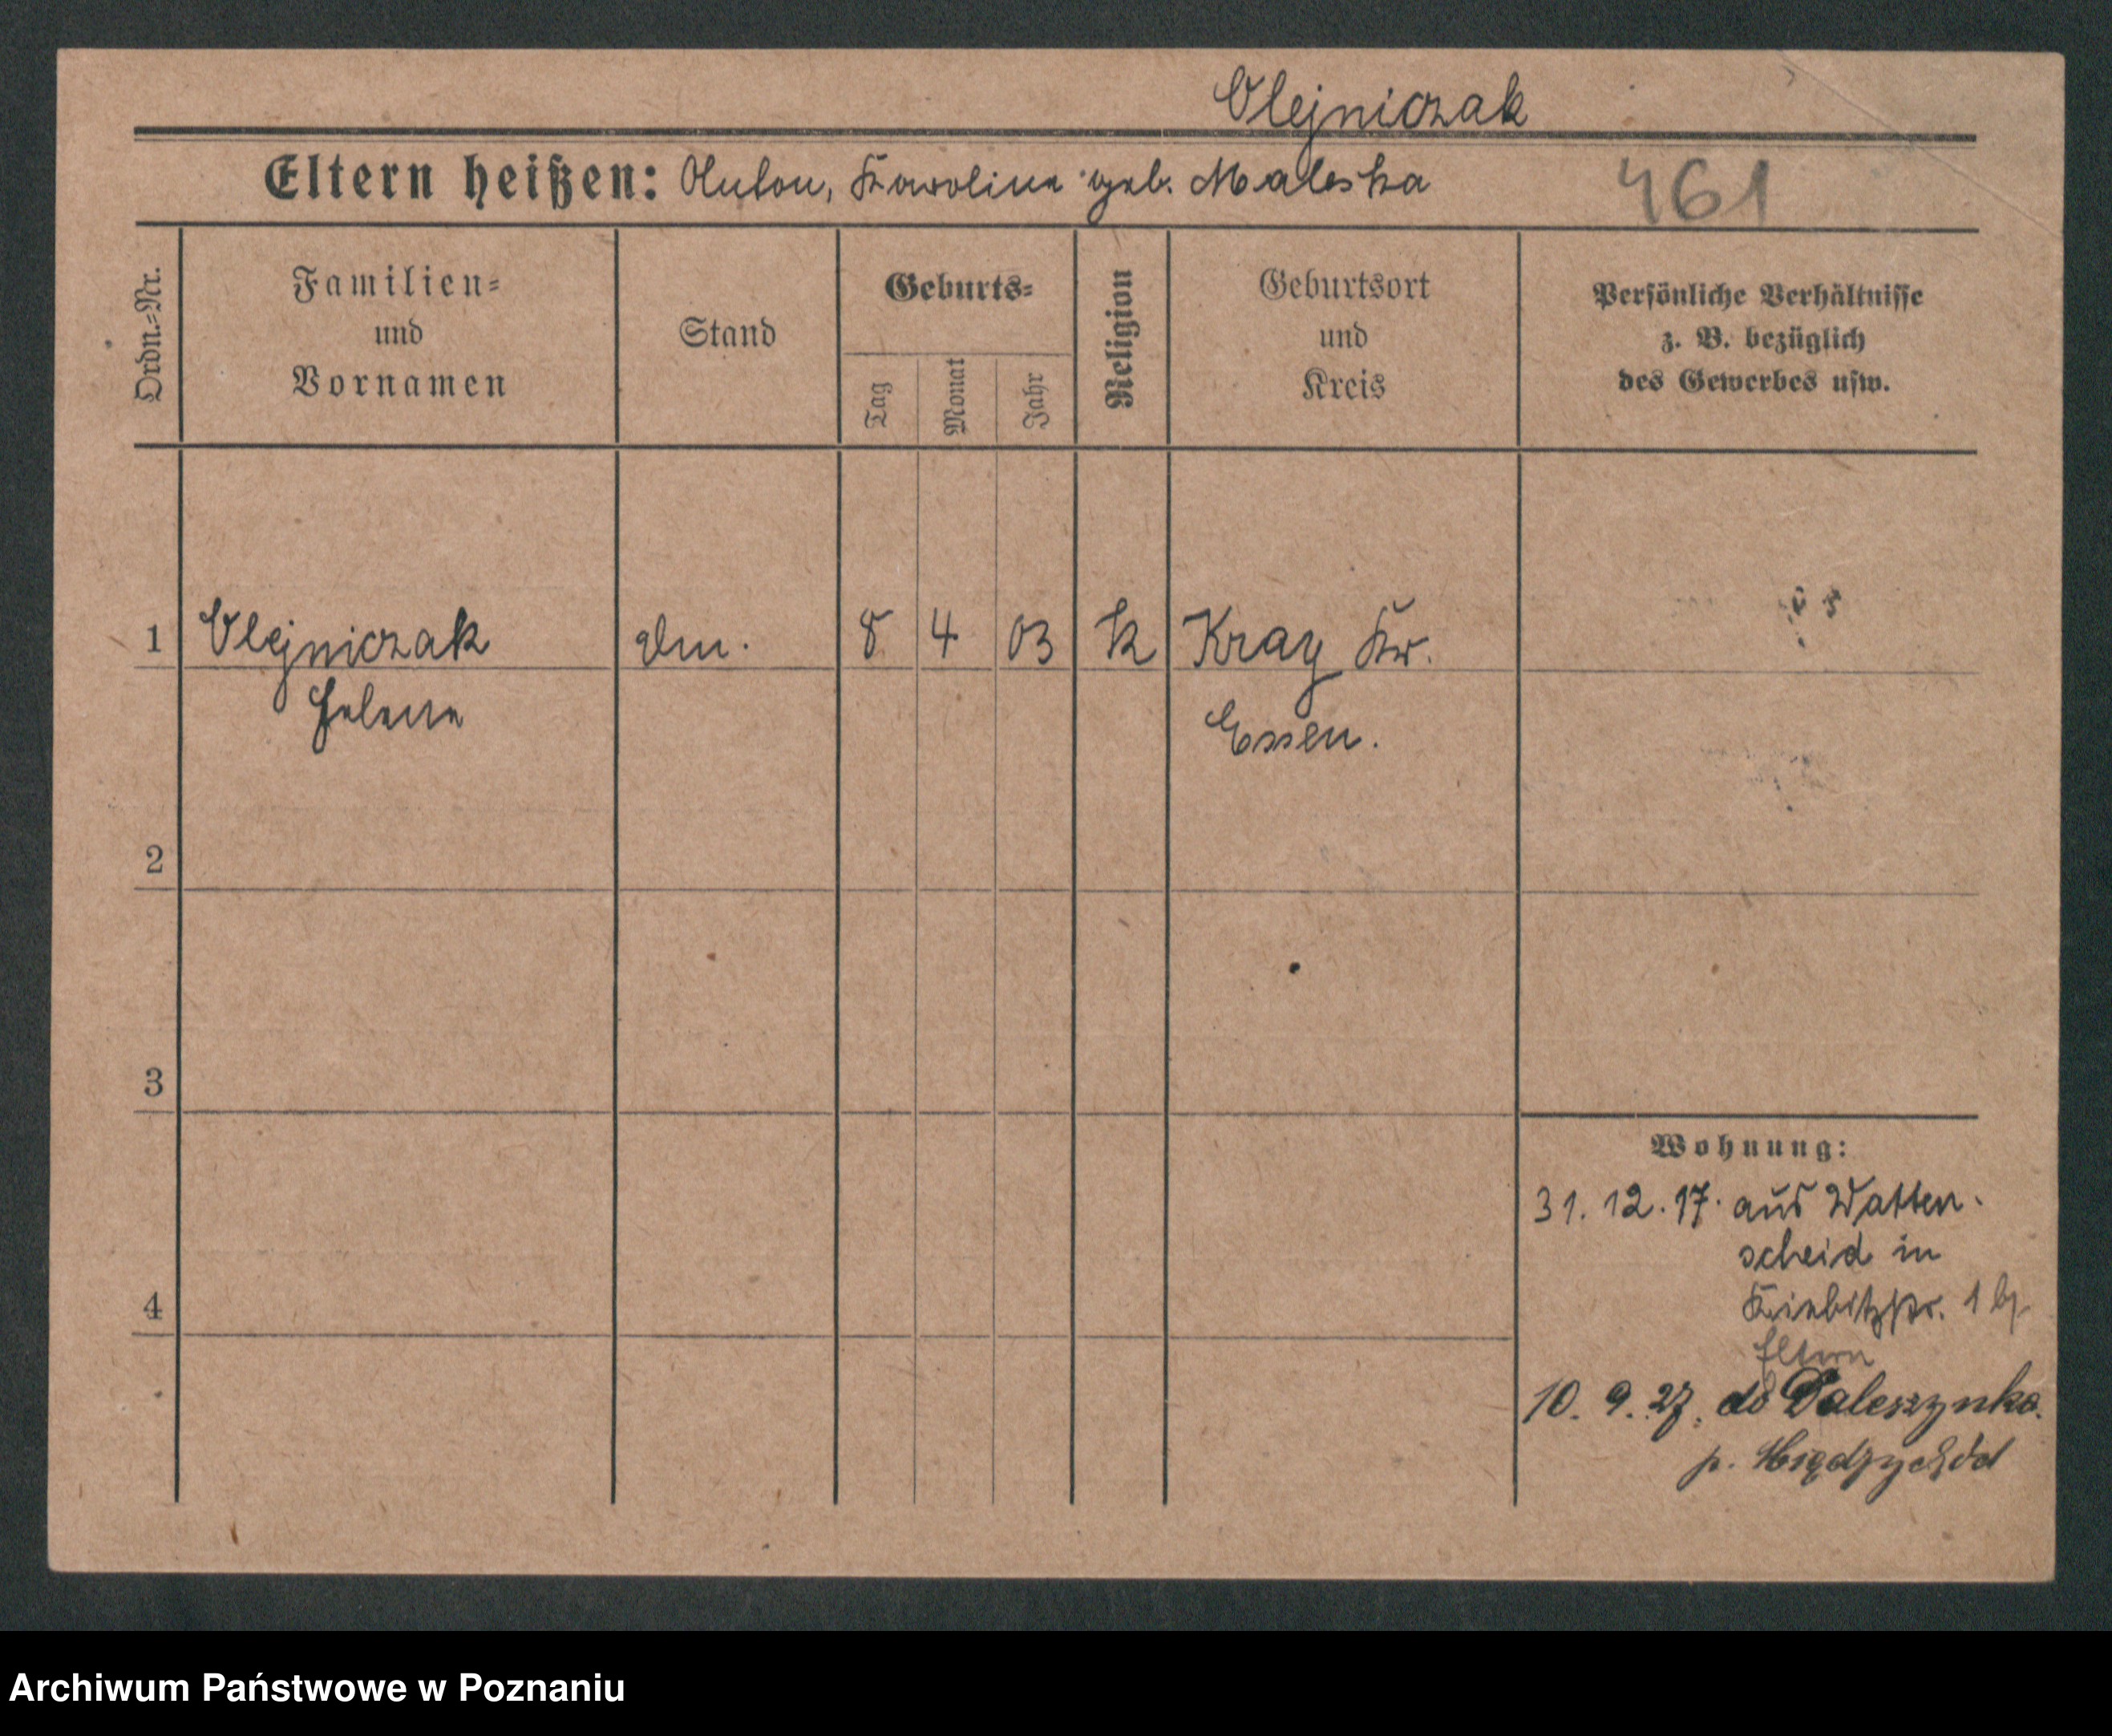 Olejniczak
Eltern heißen: Anton, Karolina geb. Maleska
461
Ordn.-Nr.
Familien-
und
Vornamen
Stand
Geburts-
Tag
Monat
Jahr
Religion
Geburtsort
und
Kreis
Persönliche Verhältnisse
z. B. bezüglich
des Gewerbes usw.
1 Olejniczak 8 4 03 k Kray Kr.
Helene Essen.
2
3
Wohnung:
31.12.17. aus Watten-
scheid in
4 Kiebitzstr. 1 b/
Eltern
10.9.27. do Daleszynka
p. Międzychód
Archiwum Państwowe w Poznaniu